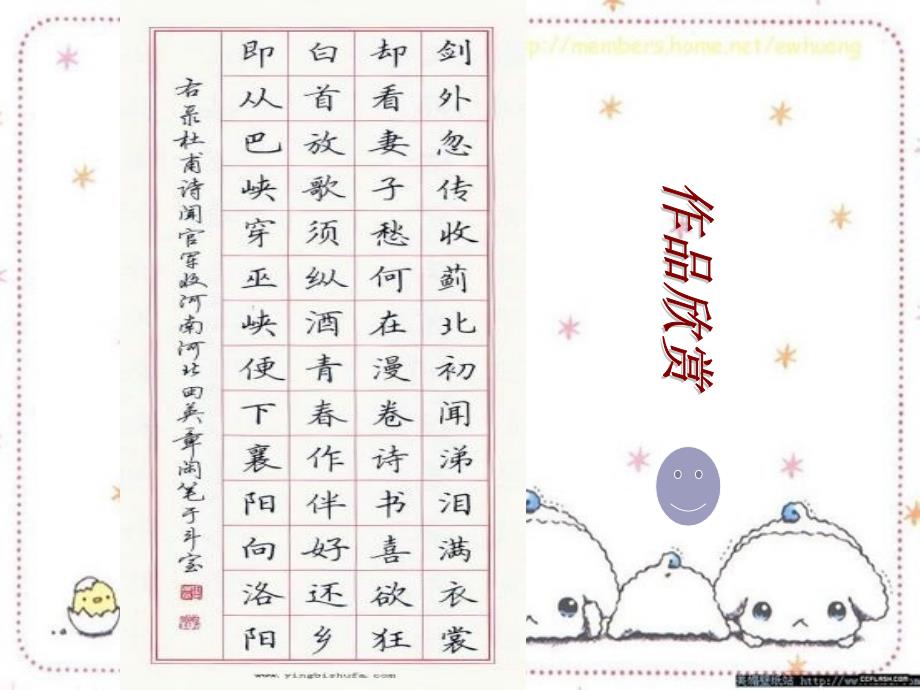 ttp://members.home.net/ewhuang
作品欣赏
剑外忽传收蓟北初闻涕泪满衣裳
却看妻子愁何在漫卷诗书喜欲狂
白首放歌须纵酒青春作伴好还乡
即从巴峡穿巫峡便下襄阳向洛阳
右录杜甫诗闻官军收河南河北田英章闲笔于斗室
www.yingbishufa.com
CCFLASH.COM